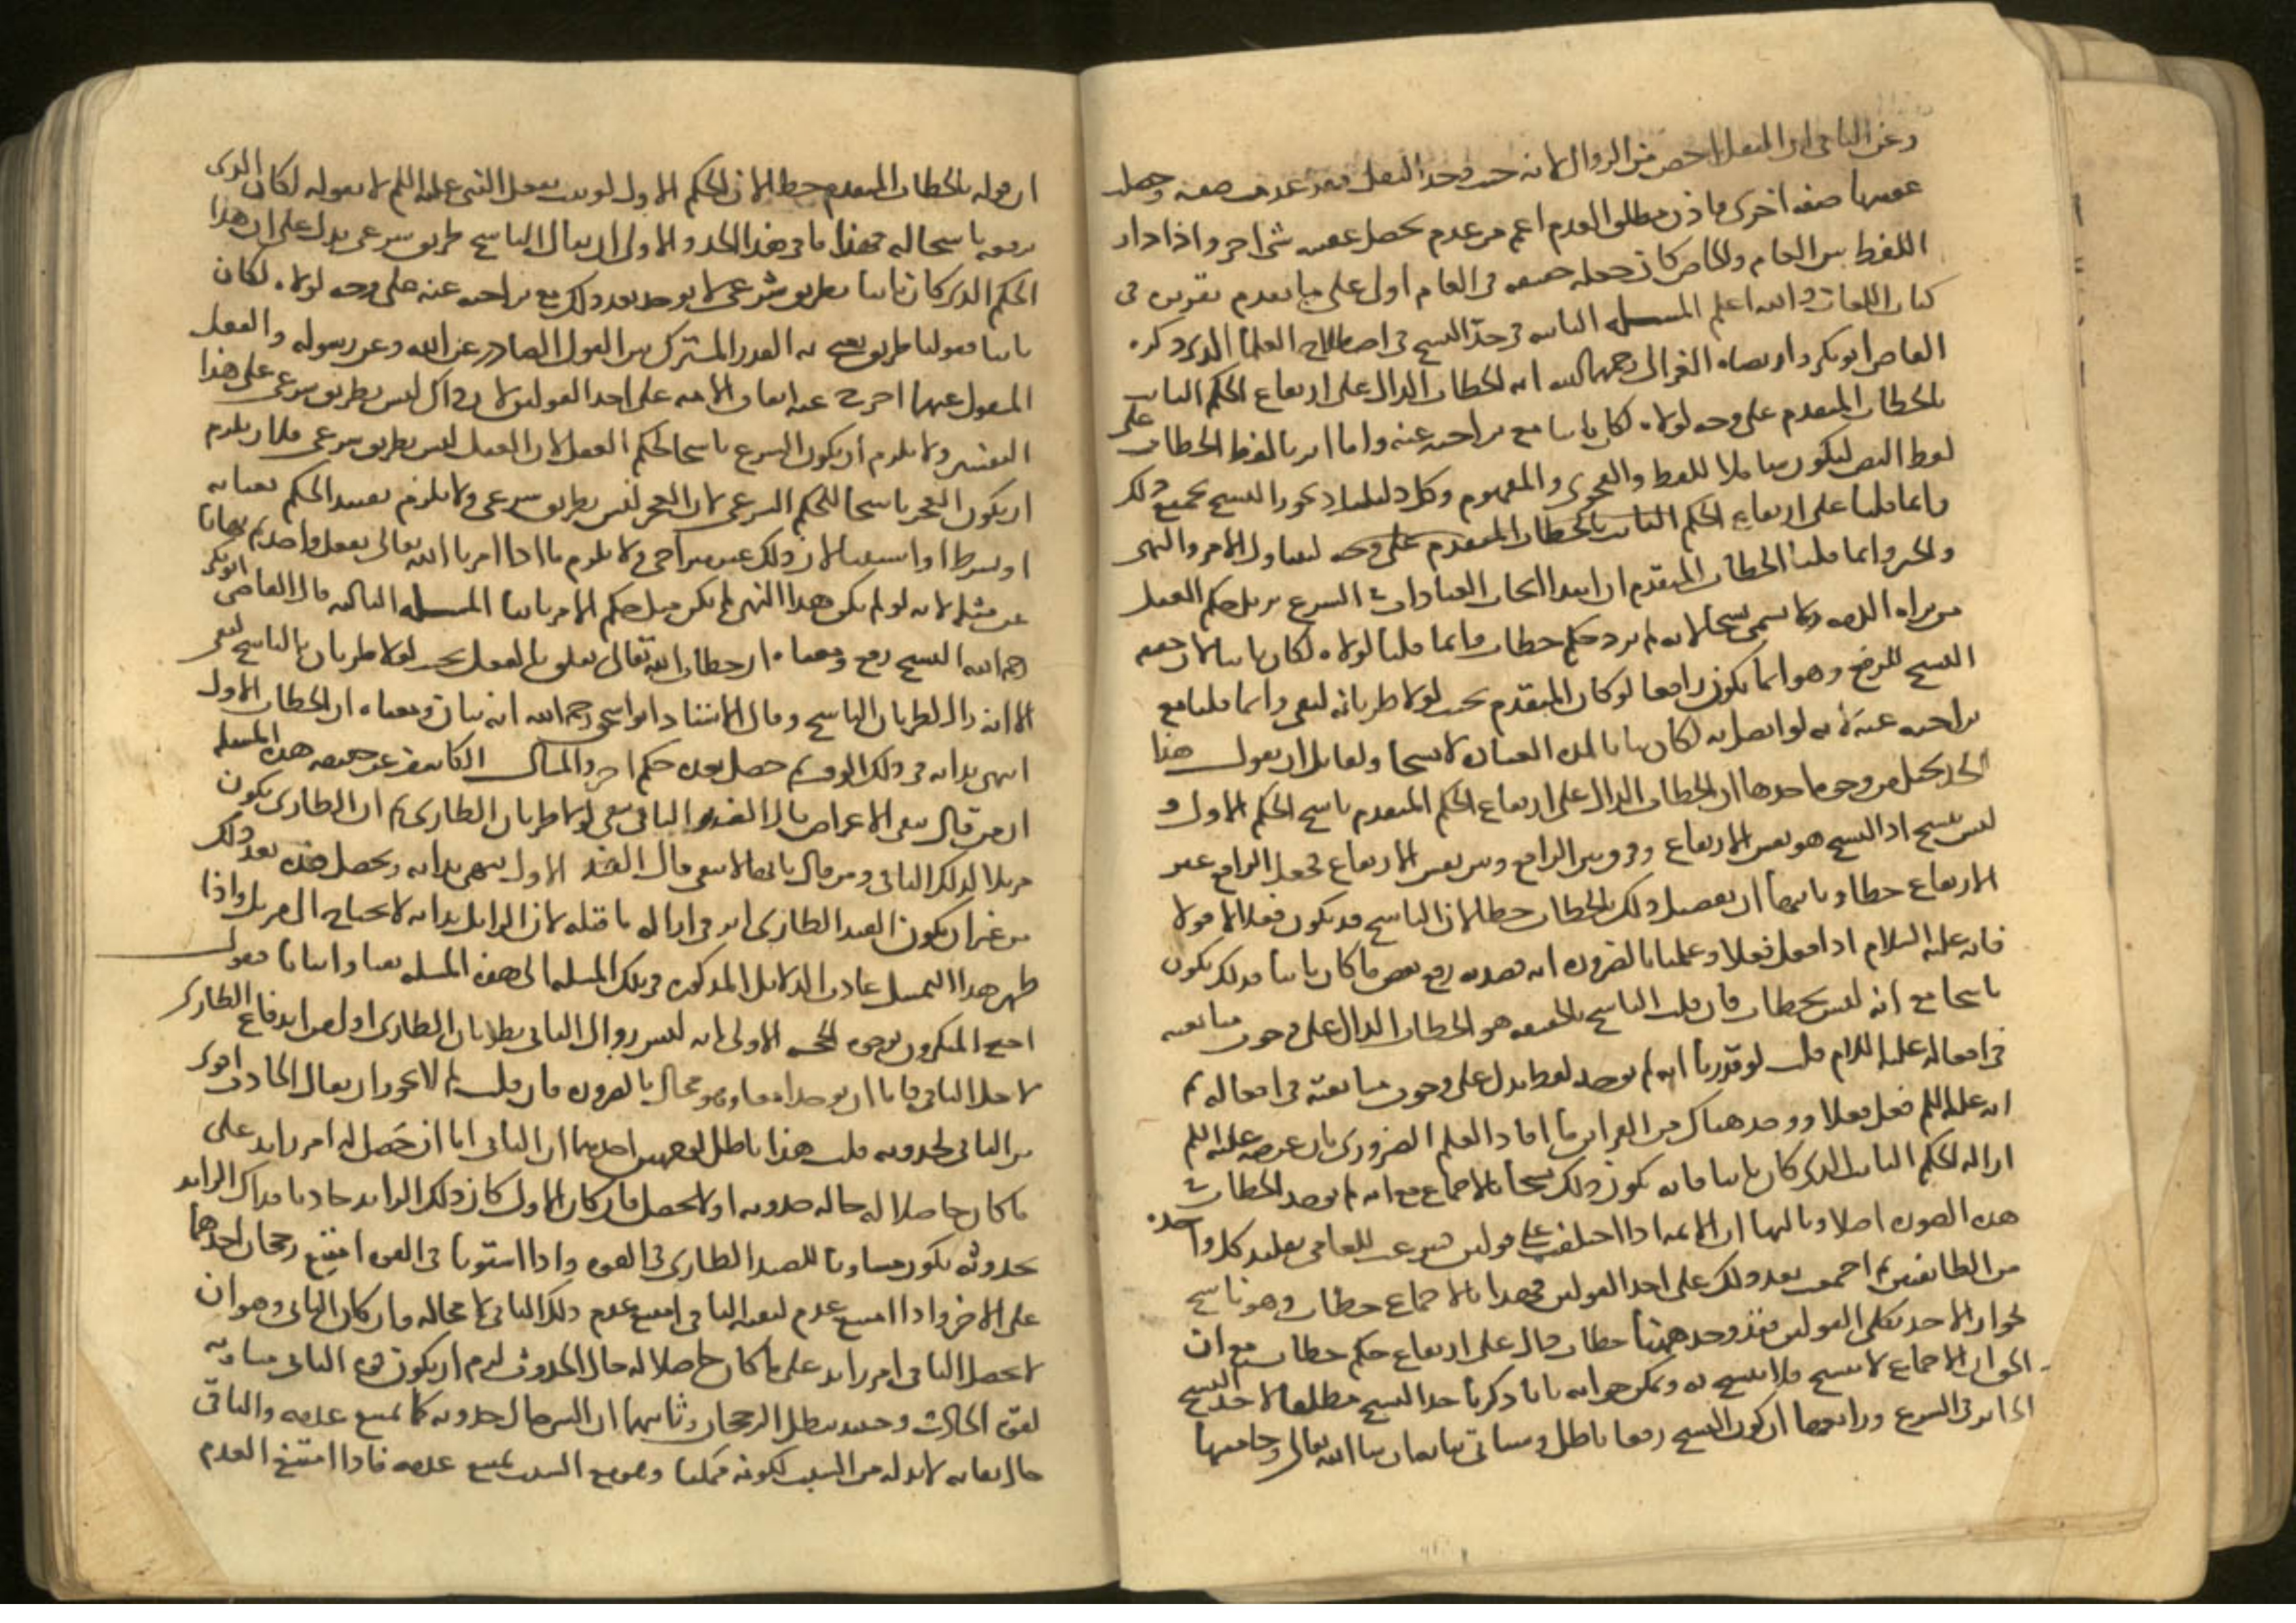 وعن الثاني ان النقل اخص من الزوال لانه حيث وجد النقل فقد عدمت صفة وحصلت
عقيبها صفة اخرى فاذن مطلق العدم اعم من عدم يحصل عقيبه شي اخر واذا دار
اللفظ بين العام والخاص كان جعله حقيقة في العام اولى على ما تقدم تقريره في
كتاب اللغات والله اعلم المسلة الثانية في حد النسخ في اصطلاح العلما الذي ذكره
القاضي ابو بكر وارتضاه الغزالي رحمهما الله انه الخطاب الدال على ارتفاع الحكم الثابت
بالخطاب المتقدم على وجه لولاه لكان ثابتا مع تراخيه عنه وانما اثرنا لفظ الخطاب على
لفظ النص ليكون شاملا للفظ والفحوى والمفهوم وكل دليل اذ يجوز النسخ بجميع ذلك
وانما قلنا على ارتفاع الحكم الثابت بالخطاب المتقدم على وجه ليتناول الامر والنهي
والخبر وانما قلنا بالخطاب المتقدم لان ابتدا ايجاب العبادات في الشرع يزيل حكم العقل
من براه الذمه ولا يسمى نسخا لانه لم يزد حكم خطاب وانما قلنا لولاه لكان ثابتا لان حقيقه
النسخ الرفع وهو انما يكون رافعا لو كان المتقدم بحيث لولا طريانه لبقي وانما قلنا مع
تراخيه عنه لانه لو اتصل به لكان بيانا لمدة العبادة لا نسخا ولقايل ان يقول هذا
الحد مختل من وجوه احدها ان الخطاب الدال على ارتفاع الحكم المتقدم ناسخ للحكم الاول و
ليس بنسخ اذ النسخ هو نفس الارتفاع وفرق بين الرافع وبين نفس الارتفاع فجعل الرافع عين
الارتفاع خطا وثانيها ان تفصيل ذلك بالخطاب خطا لان الناسخ قد يكون فعلا لا قولا
فانه عليه السلام اذا فعل فعلا وعلمنا بالضرورة انه قصد به رفع بعض ما كان ثابتا فذلك يكون
ناسخا مع انه ليس بخطاب فان قلت الناسخ بالحقيقه هو الخطاب الدال على وجوب متابعته
في افعاله عليه السلام قلت لو قدرنا انه لم يوجد لفظ يدل على وجوب متابعته في افعاله ثم
انه عليه السلم فعل فعلا ووجد هناك من القراين ما افاد العلم الضروري بان غرضه عليه السلم
ازاله الحكم الثابت الذي كان ثابتا فانه يكون ذلك نسخا بالاجماع مع انه لم يوجد الخطاب في
هذه الصوره اصلا وثالثها ان الامه اذا اختلفت على قولين فسوغت للعامي تقليد كل واحده
من الطايفتين ثم اجمعت بعد ذلك على احد القولين فهذا الاجماع خطاب وهو ناسخ
لجواز الاخذ بكلى القولين فقد وجد ههنا خطاب دال على ارتفاع حكم خطاب مع ان
الحق ان الاجماع لا ينسخ ولا ينسخ به ويمكن جوابه بانا ذكرنا حد النسخ مطلقا لا حد النسخ
الجايز في الشرع ورابعها ان كون النسخ رفعا باطل وسياتي بيانه ان شا الله تعالى وخامسها
ان قوله بالخطاب المتقدم خطا لان الحكم الاول لو ثبت بفعل النبي عليه السلم لا بقوله لكان الذي
يرفعه ناسخا له فهذا ما في هذا الحد والاولى ان يقال الناسخ طريق شرعي يدل على ان هذا
الحكم الذي كان ثابتا بطريق شرعي لا يوجد بعد ذلك مع تراخيه عنه على وجه لولاه لكان
ثابتا فقولنا طريق نعني به القدر المشترك بين القول الصادر عن الله وعن رسوله والفعل
المنقول عنهما اخرج عنه اتفاق الامه على احد القولين لان ذاك ليس بطريق شرعي على هذا
التفسير ولا يلزم ان يكون الشرع ناسخا لحكم العقل لان العقل ليس بطريق شرعي ولا يلزم
ان يكون العجز ناسخا للحكم الشرعي لان العجز ليس بطريق شرعي ولا يلزم تقييد الحكم بغايه
او بشرط او استثنا لان ذلك غير متراخ ولا يلزم ما اذا امرنا الله تعالى بفعل واحد ثم نهانا
عن مثله لانه لو لم يكن هذا النهي لم يكن مثل حكم الامر ثابتا المسلة الثالثه قال القاضي ابو بكر
رحمه الله النسخ رفع ومعناه ان خطاب الله تعالى تعلق بالفعل بحيث لولا طريان الناسخ لبقي
الا انه زال لطريان الناسخ وقال الاستاذ ابو اسحق رحمه الله انه بيان ومعناه ان الخطاب الاول
انتهى بذاته في ذلك الوقت ثم حصل بعده حكم اخر والمثال الكاشف عن حقيقه هذه المسله
ان من قال ببقى الاعراض قال الضد الباقي يبقى لولا طريان الطاري ثم ان الطاري يكون
مزيلا لذلك الباقي ومن قال بانها لا تبقى قال الضد الاول ينتهي بذاته ويحصل ضده بعد ذلك
من غير ان يكون للضد الطاري اثر في ازاله ما قبله لان الزايل بذاته لا يحتاج الى مزيل واذا
ظهر هذا التمثيل عادت الدلايل المذكوره في تلك المسله الى هذه المسله نفيا واثباتا فنقول
احتج المنكرون بوجوه الحجه الاولى انه ليس زوال الباقي بطريان الطاري اولى من اندفاع الطاري
لاجل الباقي فاما ان يوجدا معا وهو محال بالضروره فان قلت لم لا يجوز ان يقال الحادث اقوى
من الباقي لحدوثه قلت هذا باطل لوجهين احدهما ان الباقي اما ان حصل له امر زايد على
ما كان حاصلا له حاله حدوثه اولا يحصل فان كان الاول كان ذلك الزايد حادثا فذاك الزايد
بحدوثه يكون مساويا للضد الطاري في القوه واذا استويا في القوه امتنع رجحان احدهما
على الاخر واذا امتنع عدم كيفيه الباقي امتنع عدم ذلك الباقي لا محاله وان كان الثاني وهو ان
لا يحصل للباقي امر زايد على ما كان حاصلا له حال الحدوث لزم ان يكون قوه الباقي مساويه
لقوه الحادث وحينيذ يبطل الرجحان وثانيهما ان الشي حال حدوثه كما يمتنع عدمه والباقي
حال بقايه لا بد له من السبب لكونه ممكنا ومع السبب يمتنع عدمه فاذا امتنع العدم